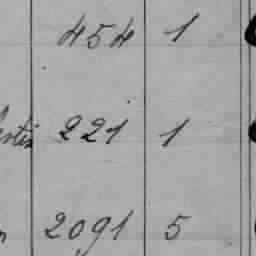 454 1
221 1
2091 5